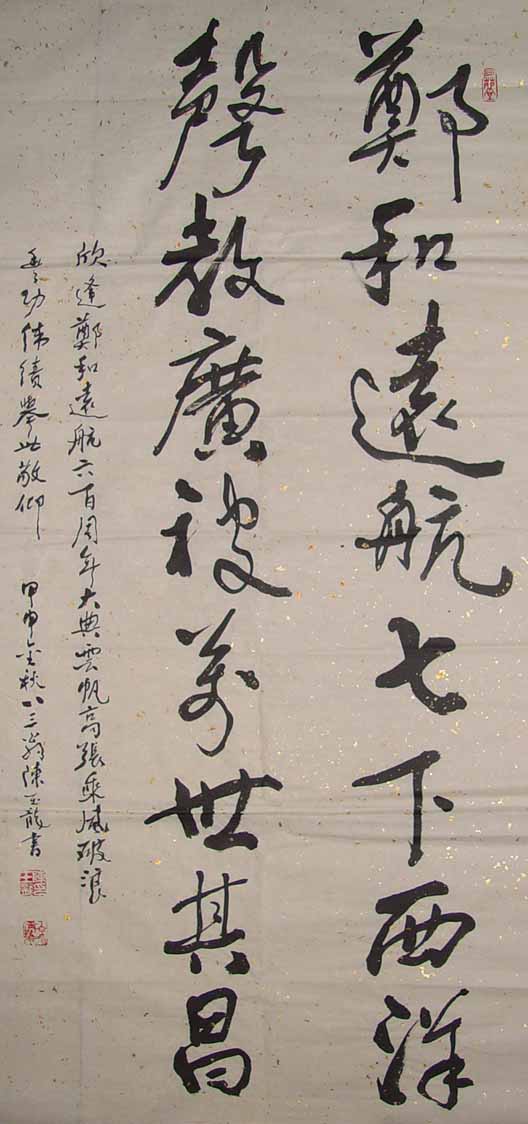 鄭和遠航七下西洋
聲教廣被萬世其昌
欣逢鄭和遠航六百周年大典雲帆高張乘風破浪
豐功偉績舉世敬仰 甲申金秋八三翁陳玉龍書